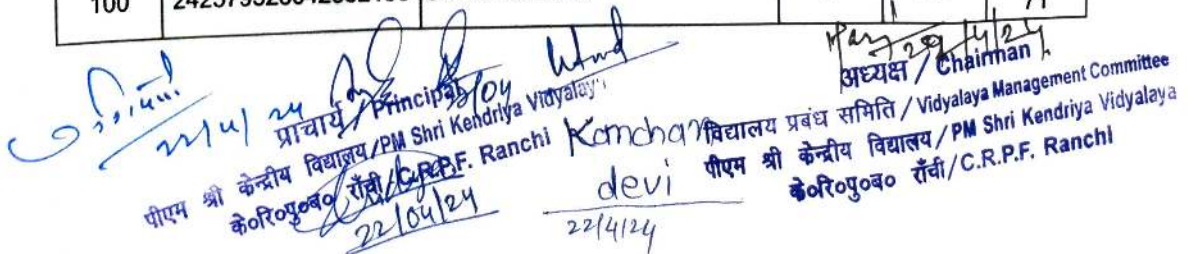 100
22/4/24
22/04
29/4/24
प्राचार्य / Principal
पीएम श्री केन्द्रीय विद्यालय/PM Shri Kendriya Vidyalaya
के०रि०पु०ब० राँची/C.R.P.F. Ranchi
22/04/24
Kanchan
devi
22/4/24
अध्यक्ष / Chairman
विद्यालय प्रबंध समिति / Vidyalaya Management Committee
पीएम श्री केन्द्रीय विद्यालय/PM Shri Kendriya Vidyalaya
के०रि०पु०ब० राँची/C.R.P.F. Ranchi